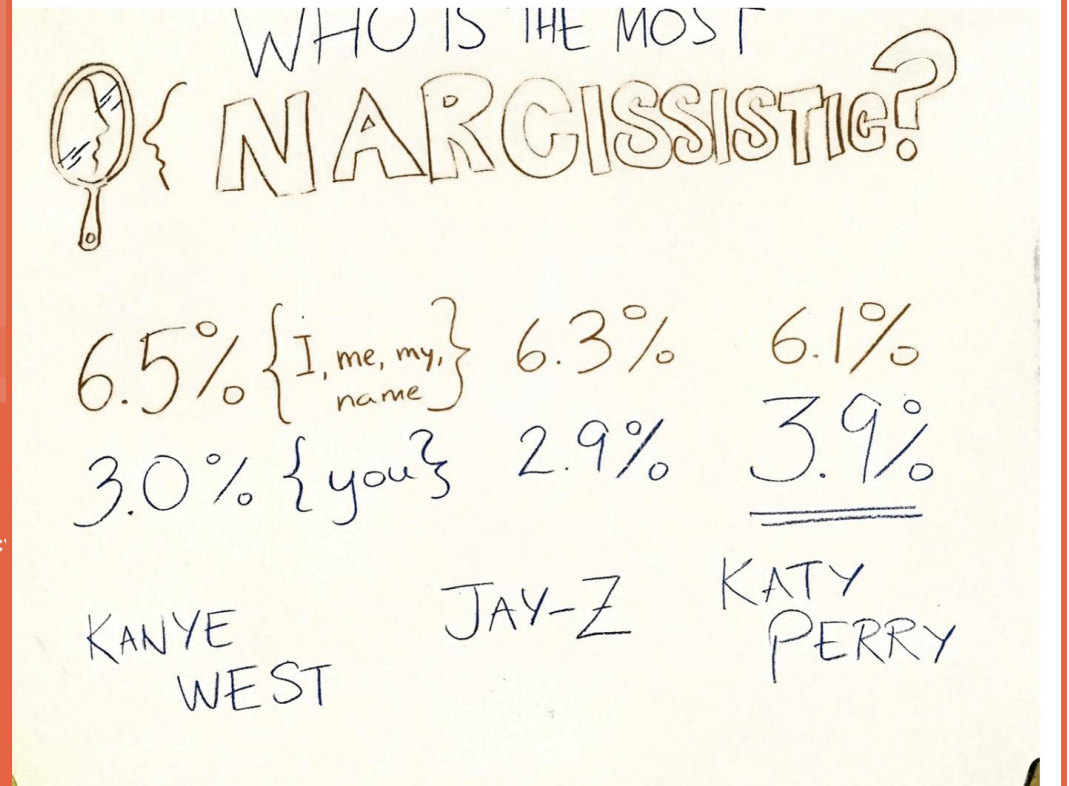 WHO IS THE MOST
NARCISSISTIC?
6.5% {I, me, my, name} 6.3% 6.1%
3.0% {you} 2.9% 3.9%
KANYE WEST JAY-Z KATY PERRY